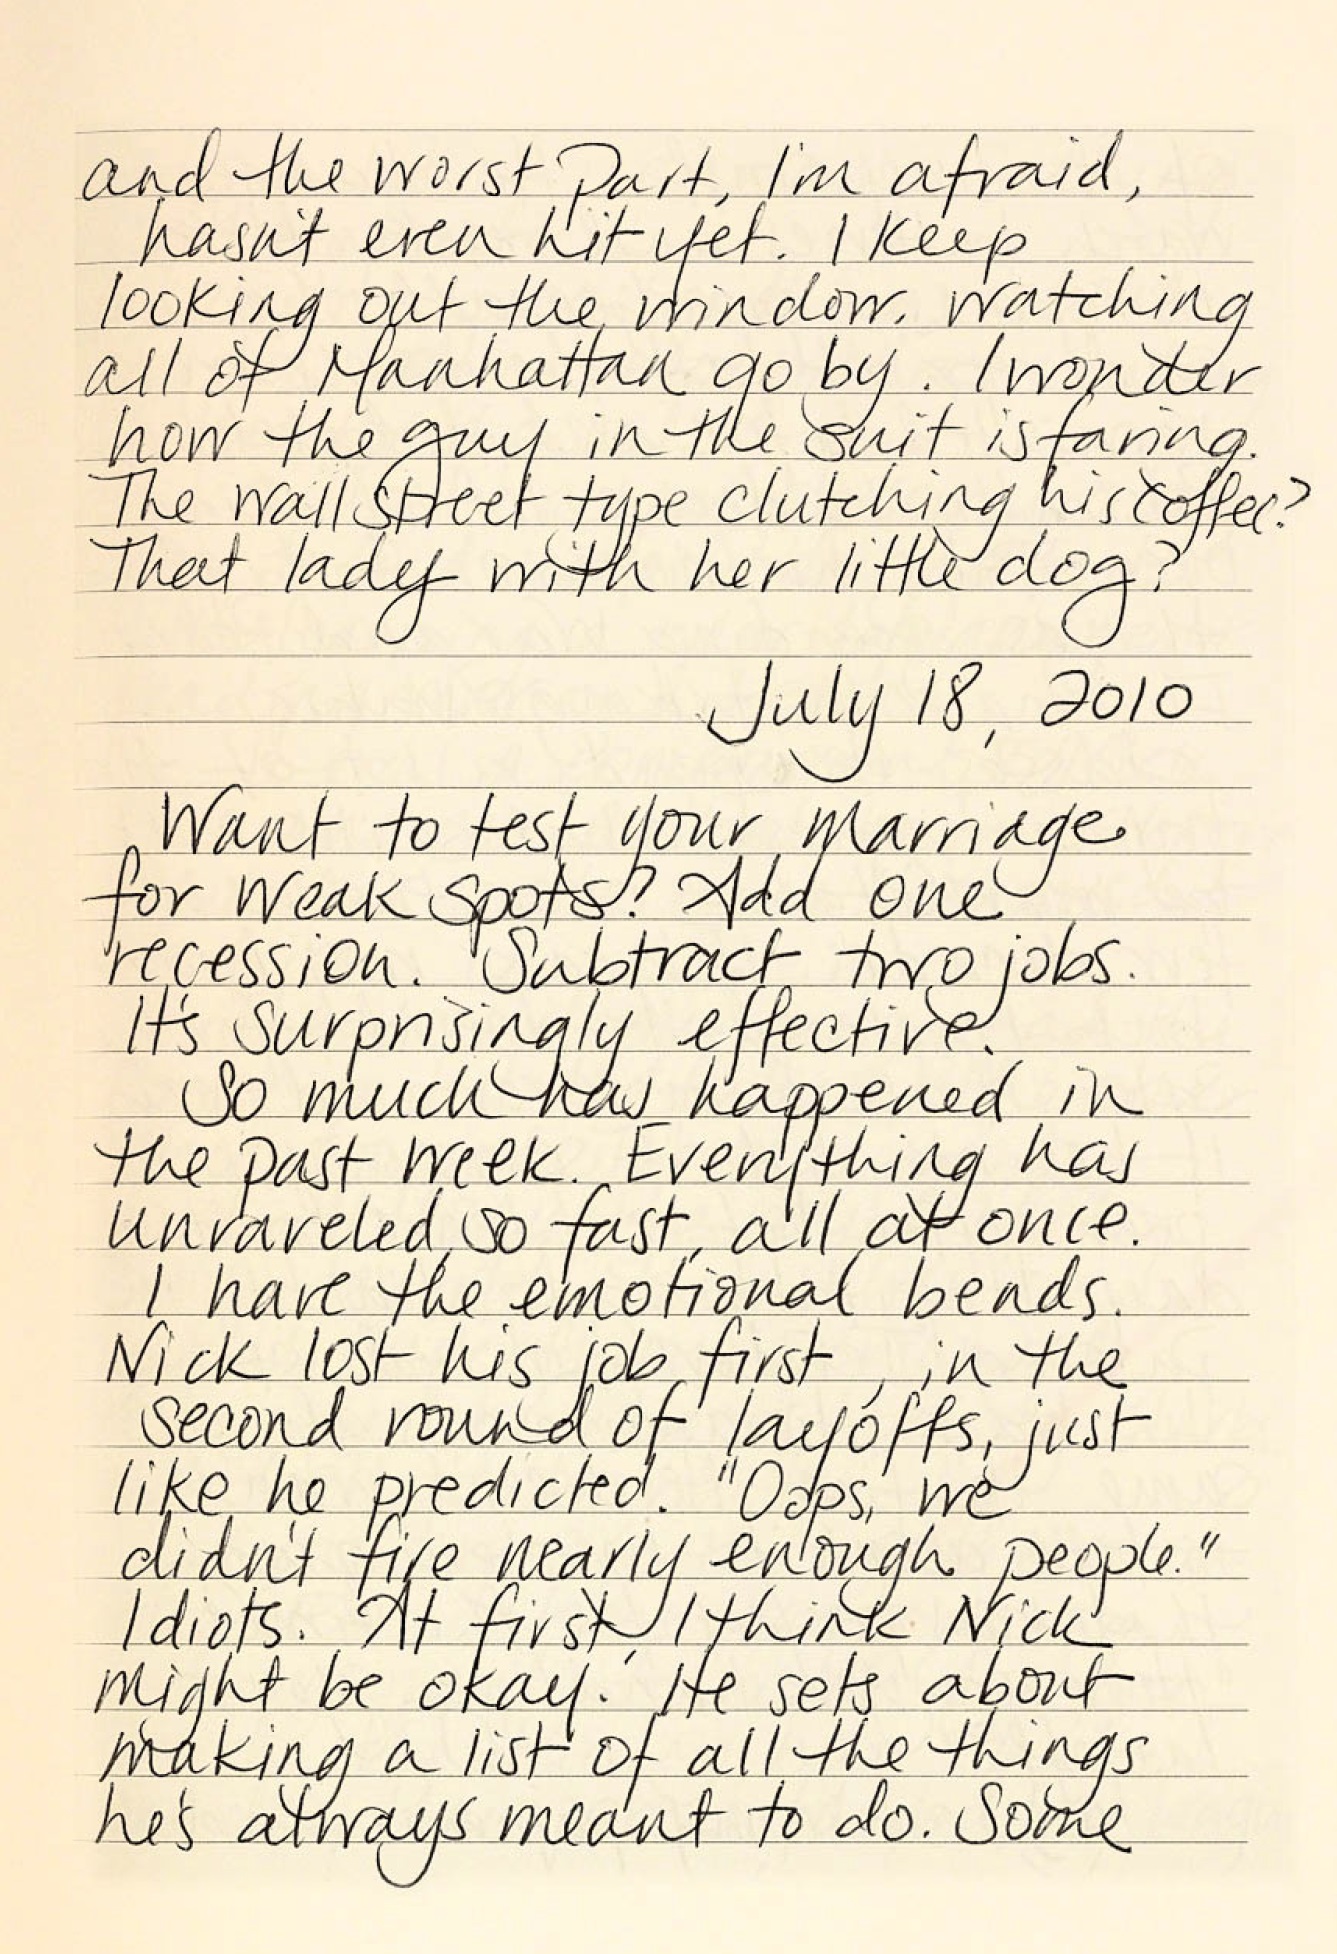 and the worst part, I'm afraid,
hasn't even hit yet. I keep
looking out the window, watching
all of Manhattan go by. I wonder
how the guy in the suit is faring.
The Wall Street type clutching his coffee?
That lady with her little dog?
July 18, 2010
Want to test your marriage
for weak spots? Add one
recession. Subtract two jobs.
It's surprisingly effective.
So much has happened in
the past week. Everything has
unraveled so fast, all at once.
I have the emotional bends.
Nick lost his job first, in the
second round of layoffs, just
like he predicted. "Oops, we
didn't fire nearly enough people."
Idiots. At first, I think Nick
might be okay. He sets about
making a list of all the things
he's always meant to do. Some